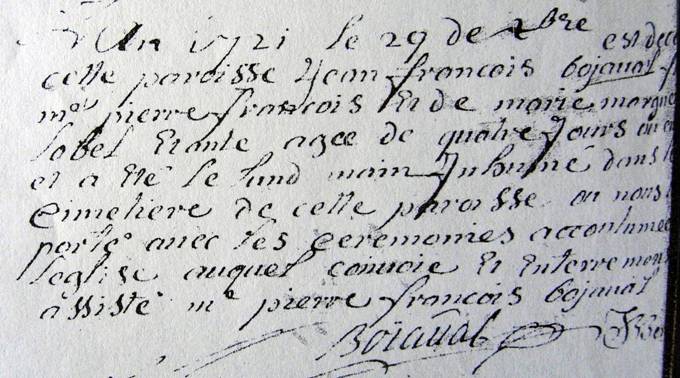 L'An 1721 le 29 de Xbre est dece
cette paroisse Jean francois bojaval
mre pierre francois Et de marie margue
lobel Etante agee de quatre Jours ou en
et a Eté le lund main Inhumé dans le
Cimetiere de cette paroisse ou nous l
porté avec les ceremonies accoutumee
leglise auquel convoie Et Enterrement
assisté mre pierre francois bojaval
Boiaval